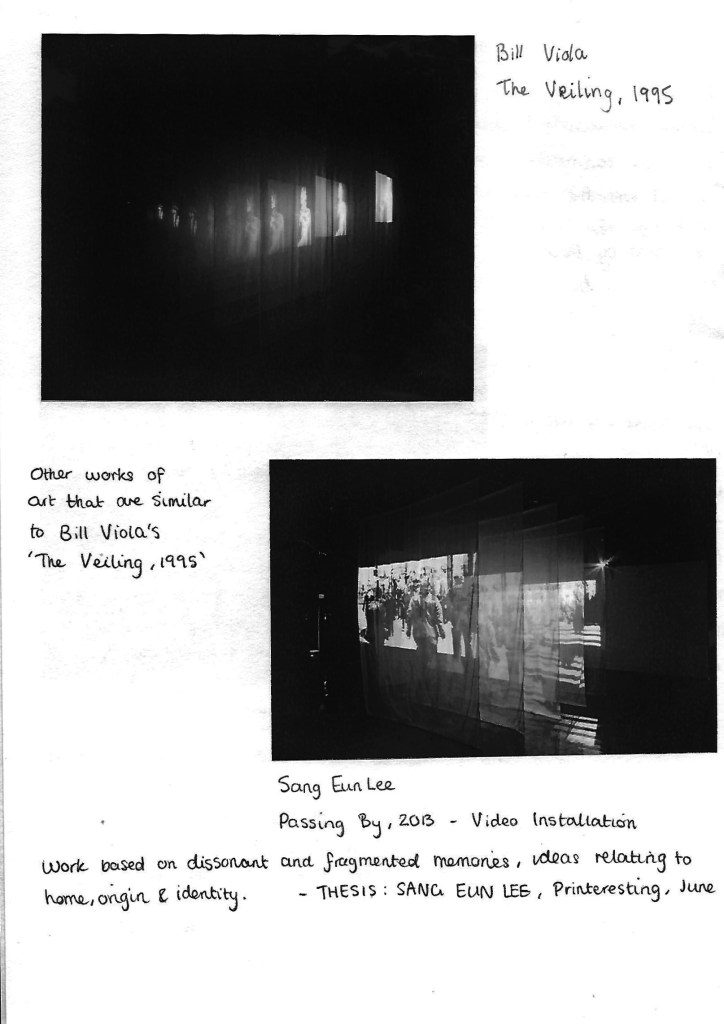 Bill Viola
The Veiling, 1995
Other works of
art that are similar
to Bill Viola's
'The Veiling, 1995'
Sang Eun Lee
Passing By, 2013 - Video Installation
Work based on dissonant and fragmented memories, ideas relating to
home, origin & identity. - THESIS: SANG EUN LEE, Printeresting, June